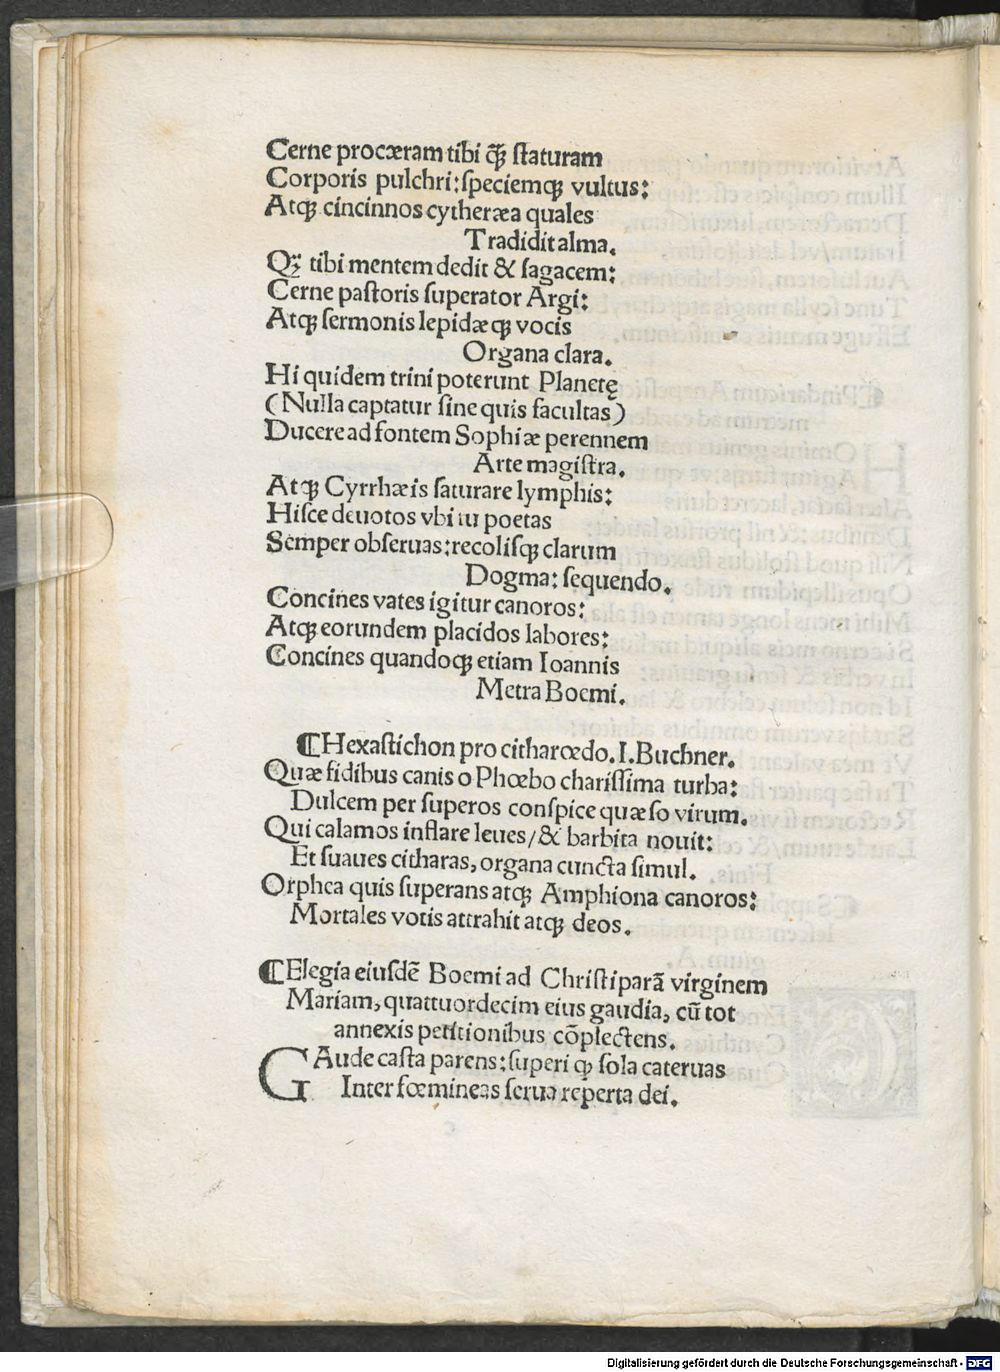 Cerne procæram tibi q̃ꝫ ſtaturam
Corporis pulchri: ſpeciemqꝫ vultus:
Atqꝫ cincinnos cytheræa quales
Tradidit alma.
Qꝫ tibi mentem dedit & ſagacem:
Cerne paſtoris ſuperator Argi:
Atqꝫ ſermonis lepidæqꝫ vocis
Organa clara.
Hi quidem trini poterunt Planetę
(Nulla captatur ſine quis facultas)
Ducere ad fontem Sophiæ perennem
Arte magiſtra.
Atqꝫ Cyrrhæis ſaturare lymphis:
Hiſce deuotos vbi tu poetas
Semper obſeruas: recoliſqꝫ clarum
Dogma: ſequendo.
Concines vates igitur canoros:
Atqꝫ eorundem placidos labores:
Concines quandoqꝫ etiam Ioannis
Metra Boemi.
¶Hexaſtichon pro citharœdo. I. Buchner.
Quæ fidibus canis o Phœbo chariſſima turba:
Dulcem per ſuperos conſpice quæſo virum.
Qui calamos inflare leues/ & barbita nouit:
Et ſuaues citharas, organa cuncta ſimul.
Orphea quis ſuperans atqꝫ Amphiona canoros:
Mortales votis attrahit atqꝫ deos.
¶Elegia eiuſdẽ Boemi ad Chriſtiparã virginem
Mariam, quattuordecim eius gaudia, cũ tot
annexis petitionibus cõplectens.
GAude caſta parens: ſuperi ꝙ ſola cateruas
Inter fœmineas ſerua reperta dei.
Digitalisierung gefördert durch die Deutsche Forschungsgemeinschaft - DFG